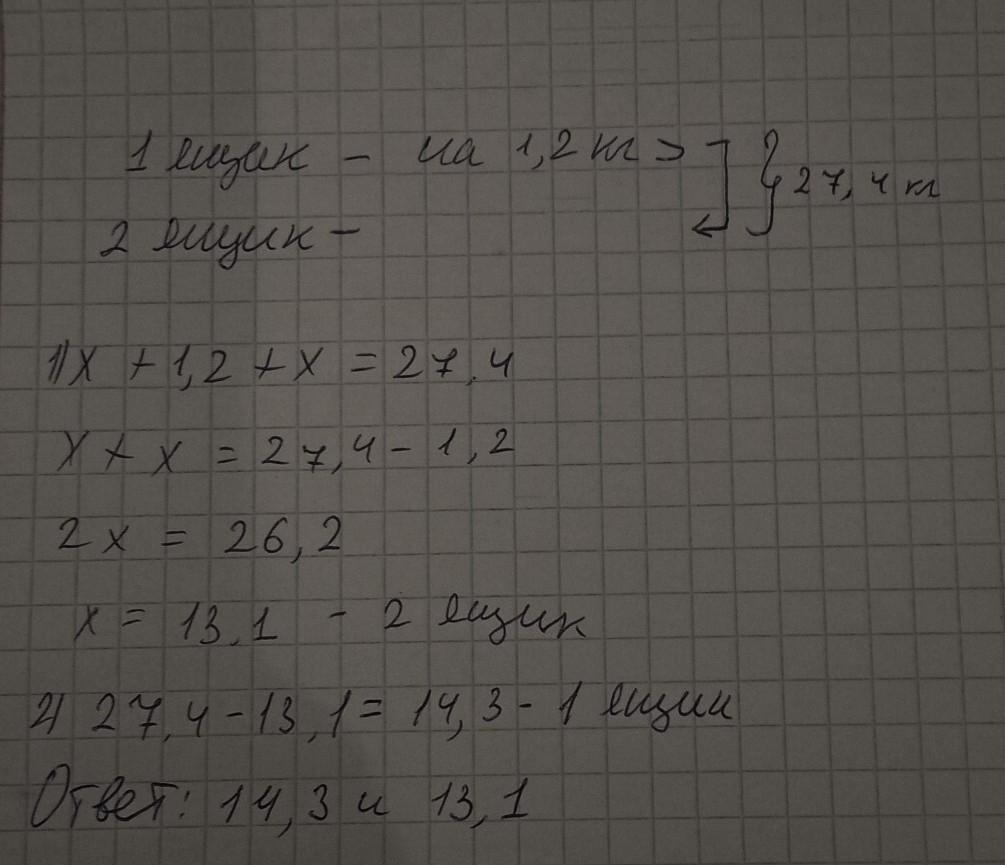 1 ящик - на 1,2 кг > } 27,4 кг
2 ящик -
1) x + 1,2 + x = 27,4
x + x = 27,4 - 1,2
2x = 26,2
x = 13,1 - 2 ящик
2) 27,4 - 13,1 = 14,3 - 1 ящик
Ответ: 14,3 и 13,1